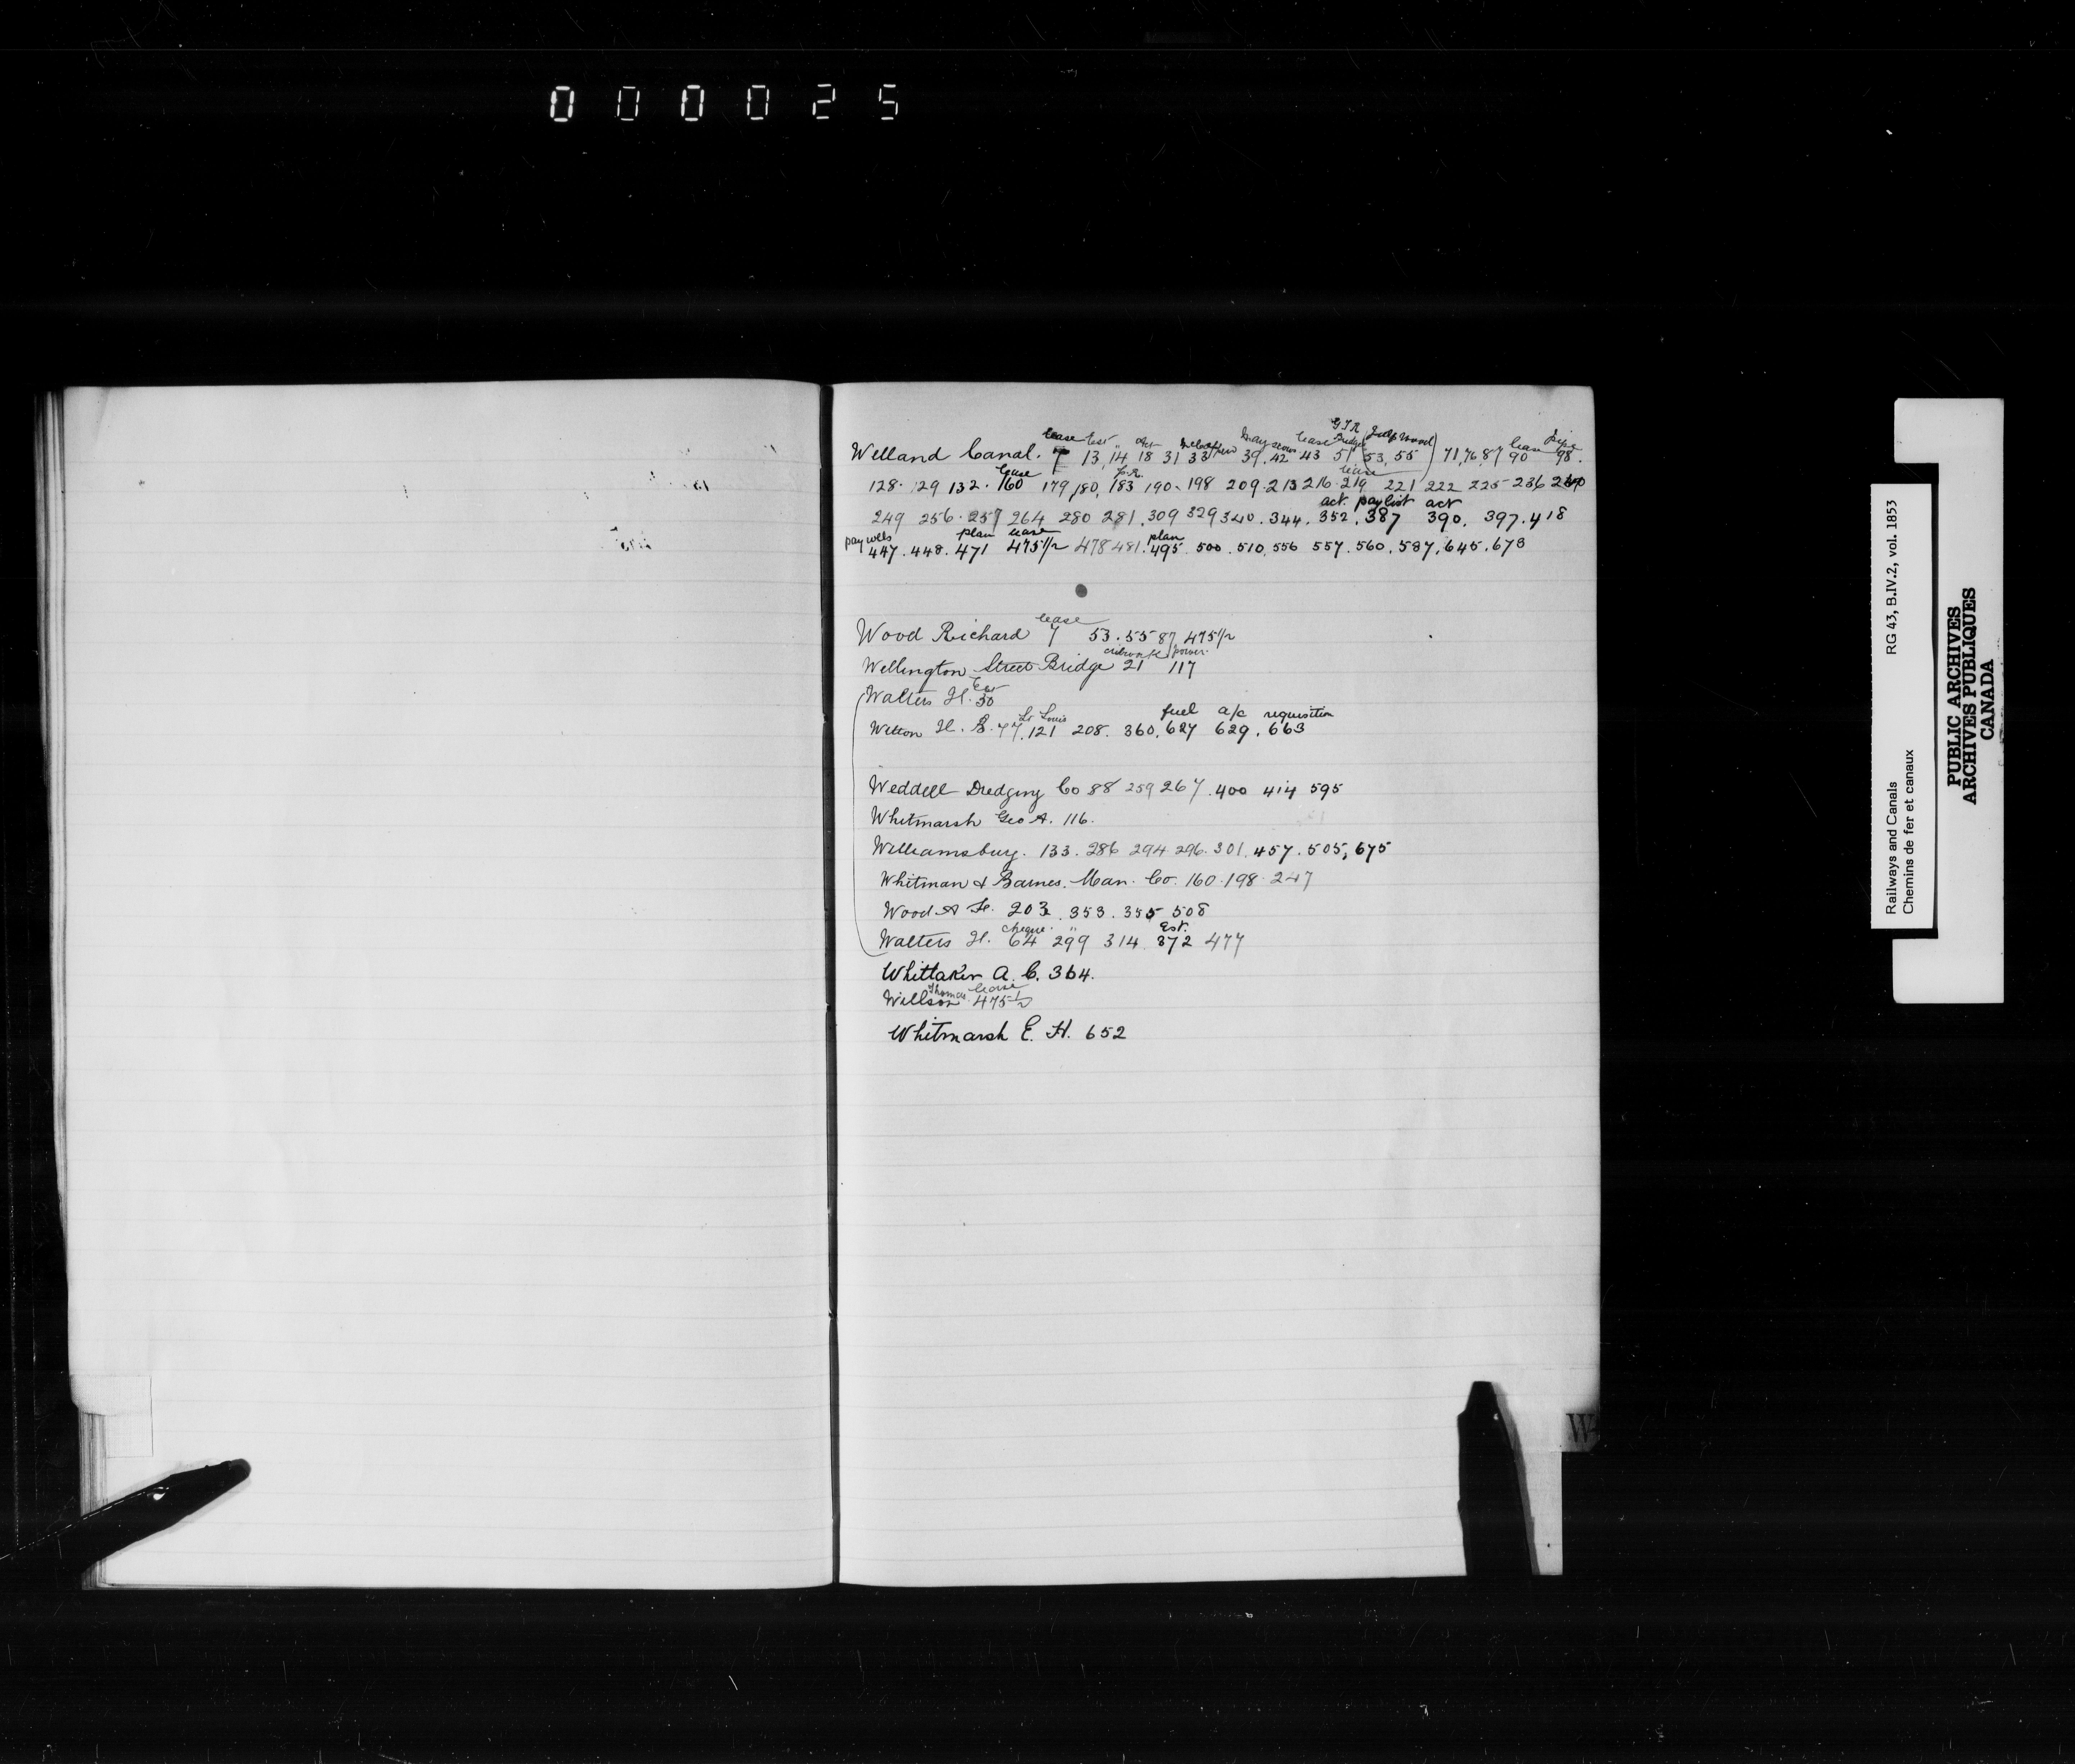 000025
lease Est " Act lease G T R Bridge Pulp Wood lease Pipe
Welland Canal. 7 13, 14 18 31 33 39. 42 43 51 (53, 55) 71, 76, 87 90 98.
lease lease
128. 129 132. 160 179, 180, 183 190. 198 209. 213 216. 219 221 222 225 236
act. paylist act
249 256. 257 264 280 281. 309 329 340. 344. 352. 387 390. 397. 418
pay rolls plan lease plan
447. 448. 471 475 1/2 478 481. 495 500. 510. 556 557. 560. 587. 645. 678
lease
Wood Richard 7 53. 55 87, 475 1/2
cribwork power.
Wellington Street Bridge 21 117
Walters H. 30
St Louis fuel a/c requisition
Wilton H. B. 77. 121 208. 360. 627 629. 663
Weddell Dredging Co 88 259 267. 400 414 595
Whitmarsh Geo A. 116.
Williamsburg. 133. 286 294 296. 301. 457. 505, 675
Whitman & Barnes. Man. Co. 160. 198. 247
Wood A F. 203. 353. 355 508
cheque. " Est.
Walters H. 64 299 314. 372 477
Whittaker A. C. 364.
Thomas lease
Willson 475 1/2
Whitmarsh E. H. 652
W
Railways and Canals RG 43, B.IV.2, vol. 1853
Chemins de fer et canaux
PUBLIC ARCHIVES
ARCHIVES PUBLIQUES
CANADA